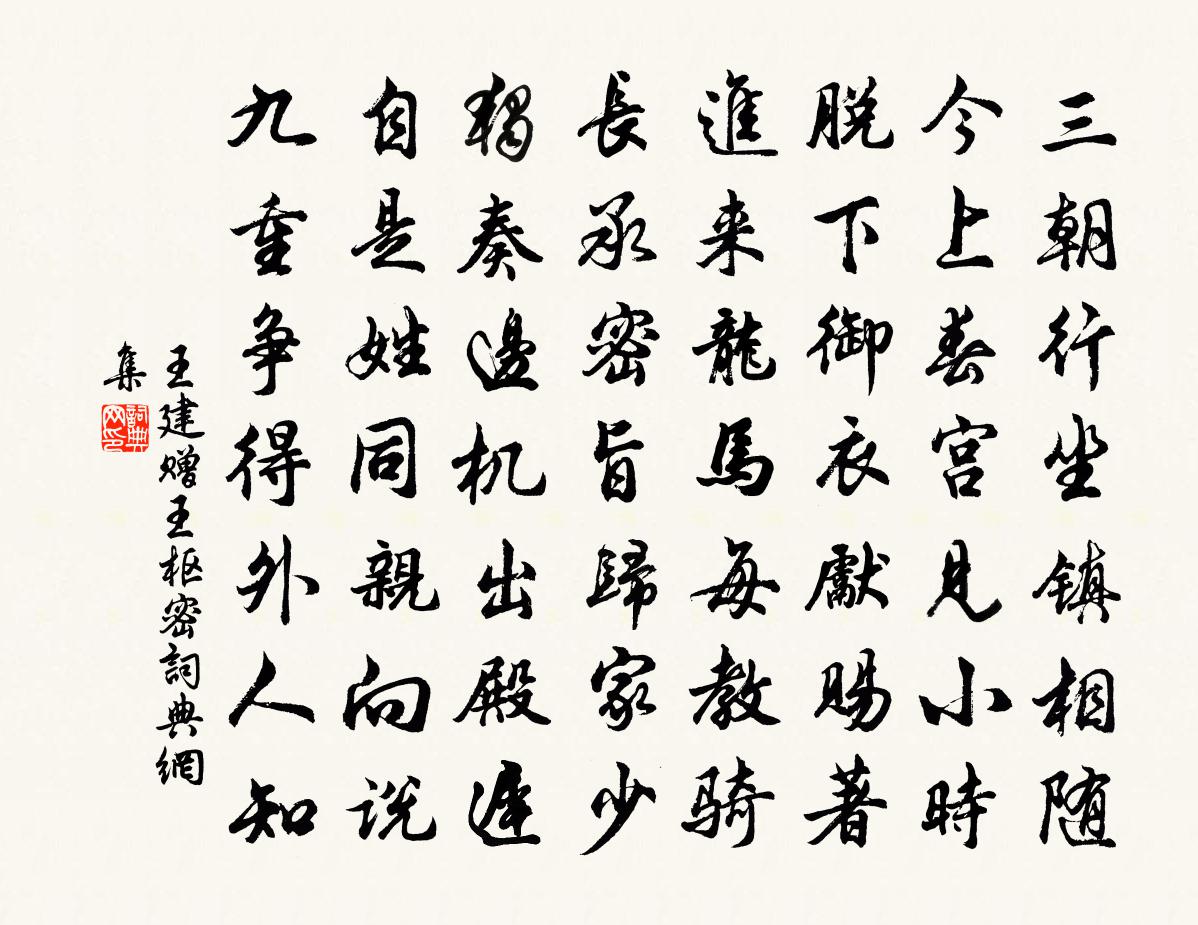 三朝行坐镇相随
今上春宫见小時
脱下御衣獻賜著
進来龍馬每教骑
長承密旨歸家少
獨奏邊机出殿遲
自是姓同親向说
九重争得外人知
王建赠王枢密詞典網
集
詞典网印